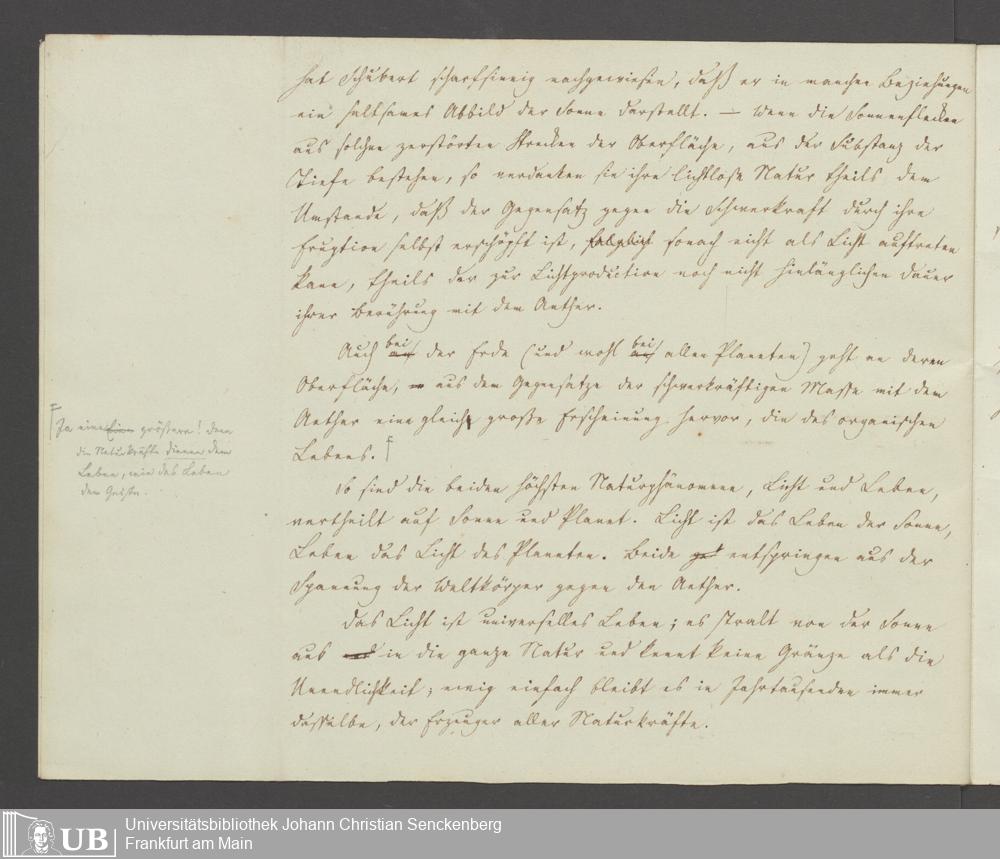 hat Schubert scharfsinnig nachgewiesen, daß er in manchen Beziehungen
ein seltsames Abbild der Sonne darstellt. — Wenn die Sonnenflecken
aus solchen zerstörten Strecken der Oberfläche, aus der Substanz der
Tiefe bestehen, so verdanken sie ihre lichtlose Natur theils dem
Umstande, daß der Gegensatz gegen die Schwerkraft durch ihre
Eruption selbst erschöpft ist, folglich sonach nicht als Licht auftreten
kann, theils der zur Lichtproduction noch nicht hinlänglichen Dauer
ihrer Berührung mit dem Aether.
Auch bei der Erde (und wohl bei allen Planeten) geht an deren
Oberfläche, aus dem Gegensatze der schwerkräftigen Masse mit dem
Aether eine gleich große Erscheinung hervor, die des organischen
Lebens. F
F
Ja eine größere! denn
die Naturkräfte dienen dem
Leben, wie das Leben
dem Geiste.
So sind die beiden höchsten Naturphänomene, Licht und Leben,
vertheilt auf Sonne und Planet. Licht ist das Leben der Sonne,
Leben das Licht des Planeten. Beide entspringen aus der
Spannung der Weltkörper gegen den Aether.
Das Licht ist universelles Leben; es stralt von der Sonne
aus in die ganze Natur und kennt keine Gränze als die
Unendlichkeit; ewig einfach bleibt es in Jahrtausenden immer
dasselbe, der Erzeuger aller Naturkräfte.
UB
Universitätsbibliothek Johann Christian Senckenberg
Frankfurt am Main